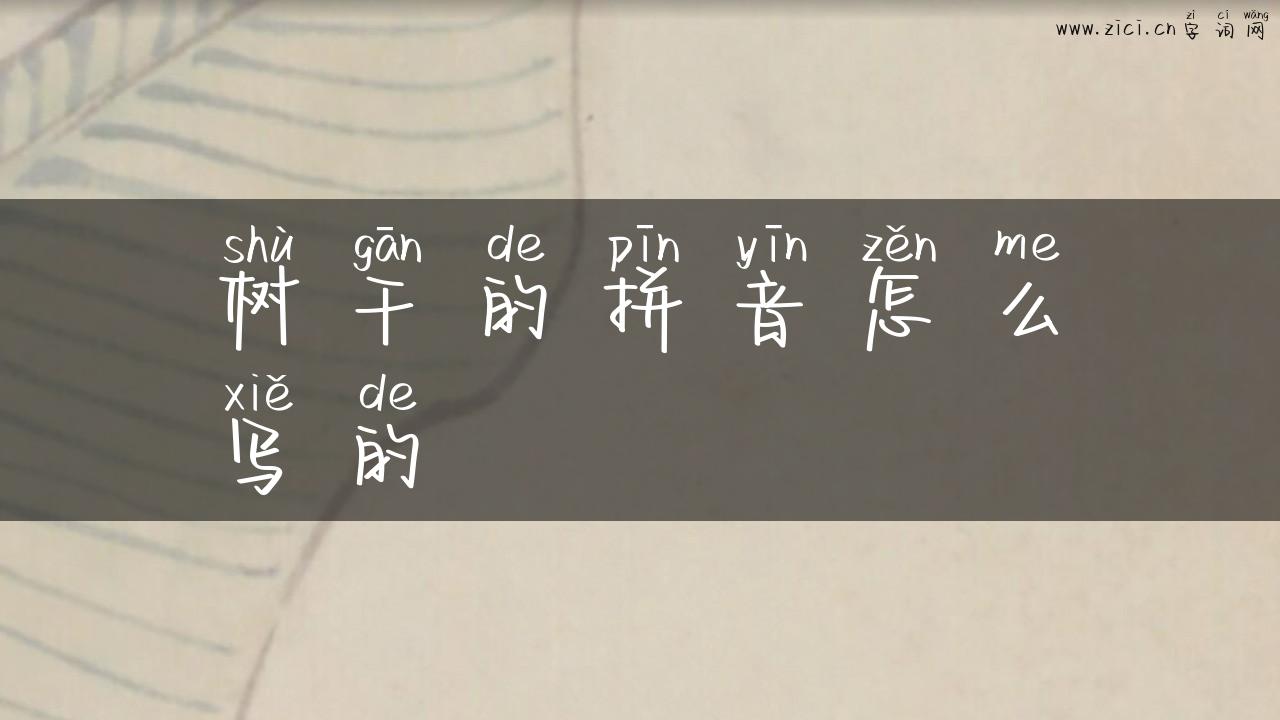 zì cí wǎng
www.zici.cn 字词网
shù gān de pīn yīn zěn me
树干的拼音怎么
xiě de
写的